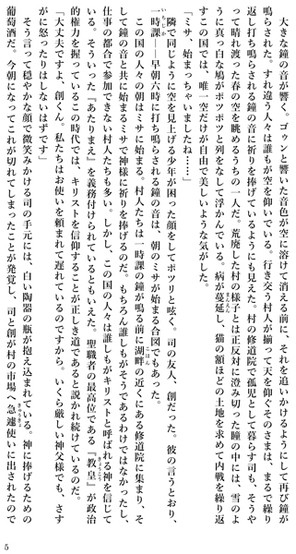 大きな鐘の音が響く。ゴウンと響いた音色が空に溶けて消える前に、それを追いかけるようにして再び鐘が
鳴らされた。すれ違う人々は誰もが空を仰いでいる。行き交う村人が揃って天を仰ぐそのさまは、まるで繰り
返し打ち鳴らされる鐘の音に祈りを捧げているようにも見えた。村の修道院で孤児として暮らす司も、そうや
って晴れ渡った春の空を眺めるうちの一人だ。荒廃した村の様子とは正反対に澄み切った瞳の中には、雪のよ
うに真っ白な鳩がポツポツと列をなして浮かんでいる。病が蔓延し、猫の額ほどの土地を求めて内戦を繰り返
すこの国では、唯一空だけが自由で美しいような気がした。
「ミサ、始まっちゃいましたね……」
隣で同じように空を見上げる少年が困った顔をしてポツリと呟く。司の友人、創だった。彼の言うとおり、
一時課――早朝六時に打ち鳴らされる鐘の音は、朝のミサが始まる合図でもあった。
この国の人々の朝はミサに始まる。村人たちは一時課の鐘が鳴る前に湖畔の近くにある修道院に集まり、そ
して鐘の音と共に始まるミサで神様に祈りを捧げるのだ。もちろん誰しもがそうであるわけではなかったし、
仕事の都合で参加できない村人たちも多い。しかし、この国の人々は誰しもがキリストと呼ばれる神を信じて
いる。そういった『あたりまえ』を義務付けられているともいえた。聖職者の最高位である『教皇』が政治
的権力を握っているこの時代では、キリストを信仰することが正しき道であると説かれ続けているのだ。
「大丈夫ですよ、創くん。私たちはお使いを頼まれて遅れているのですから。いくら厳しい神父様でも、さす
がに怒ったりはしないはずです」
そう言って穏やかな顔で微笑みかける司の手元には、白い陶器の瓶が抱え込まれている。神に捧げるための
葡萄酒だ。今朝になってこれが切れてしまったことが発覚し、司と創が村の市場へ急遽使いに出されたので
5